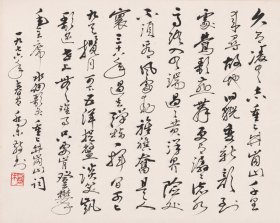 久有凌云志重上井冈山
千里来寻故地旧貌变新颜到
处莺歌燕舞更有潺潺流水
高路入云端过了黄洋界险处
不须看风雷动旌旗奋是人
寰三十八年过去弹指一挥间可上
九天揽月可下五洋捉鳖谈笑凯
歌还世上无难事只要肯登攀
毛主席水调歌头重上井冈山词
一九七六年春